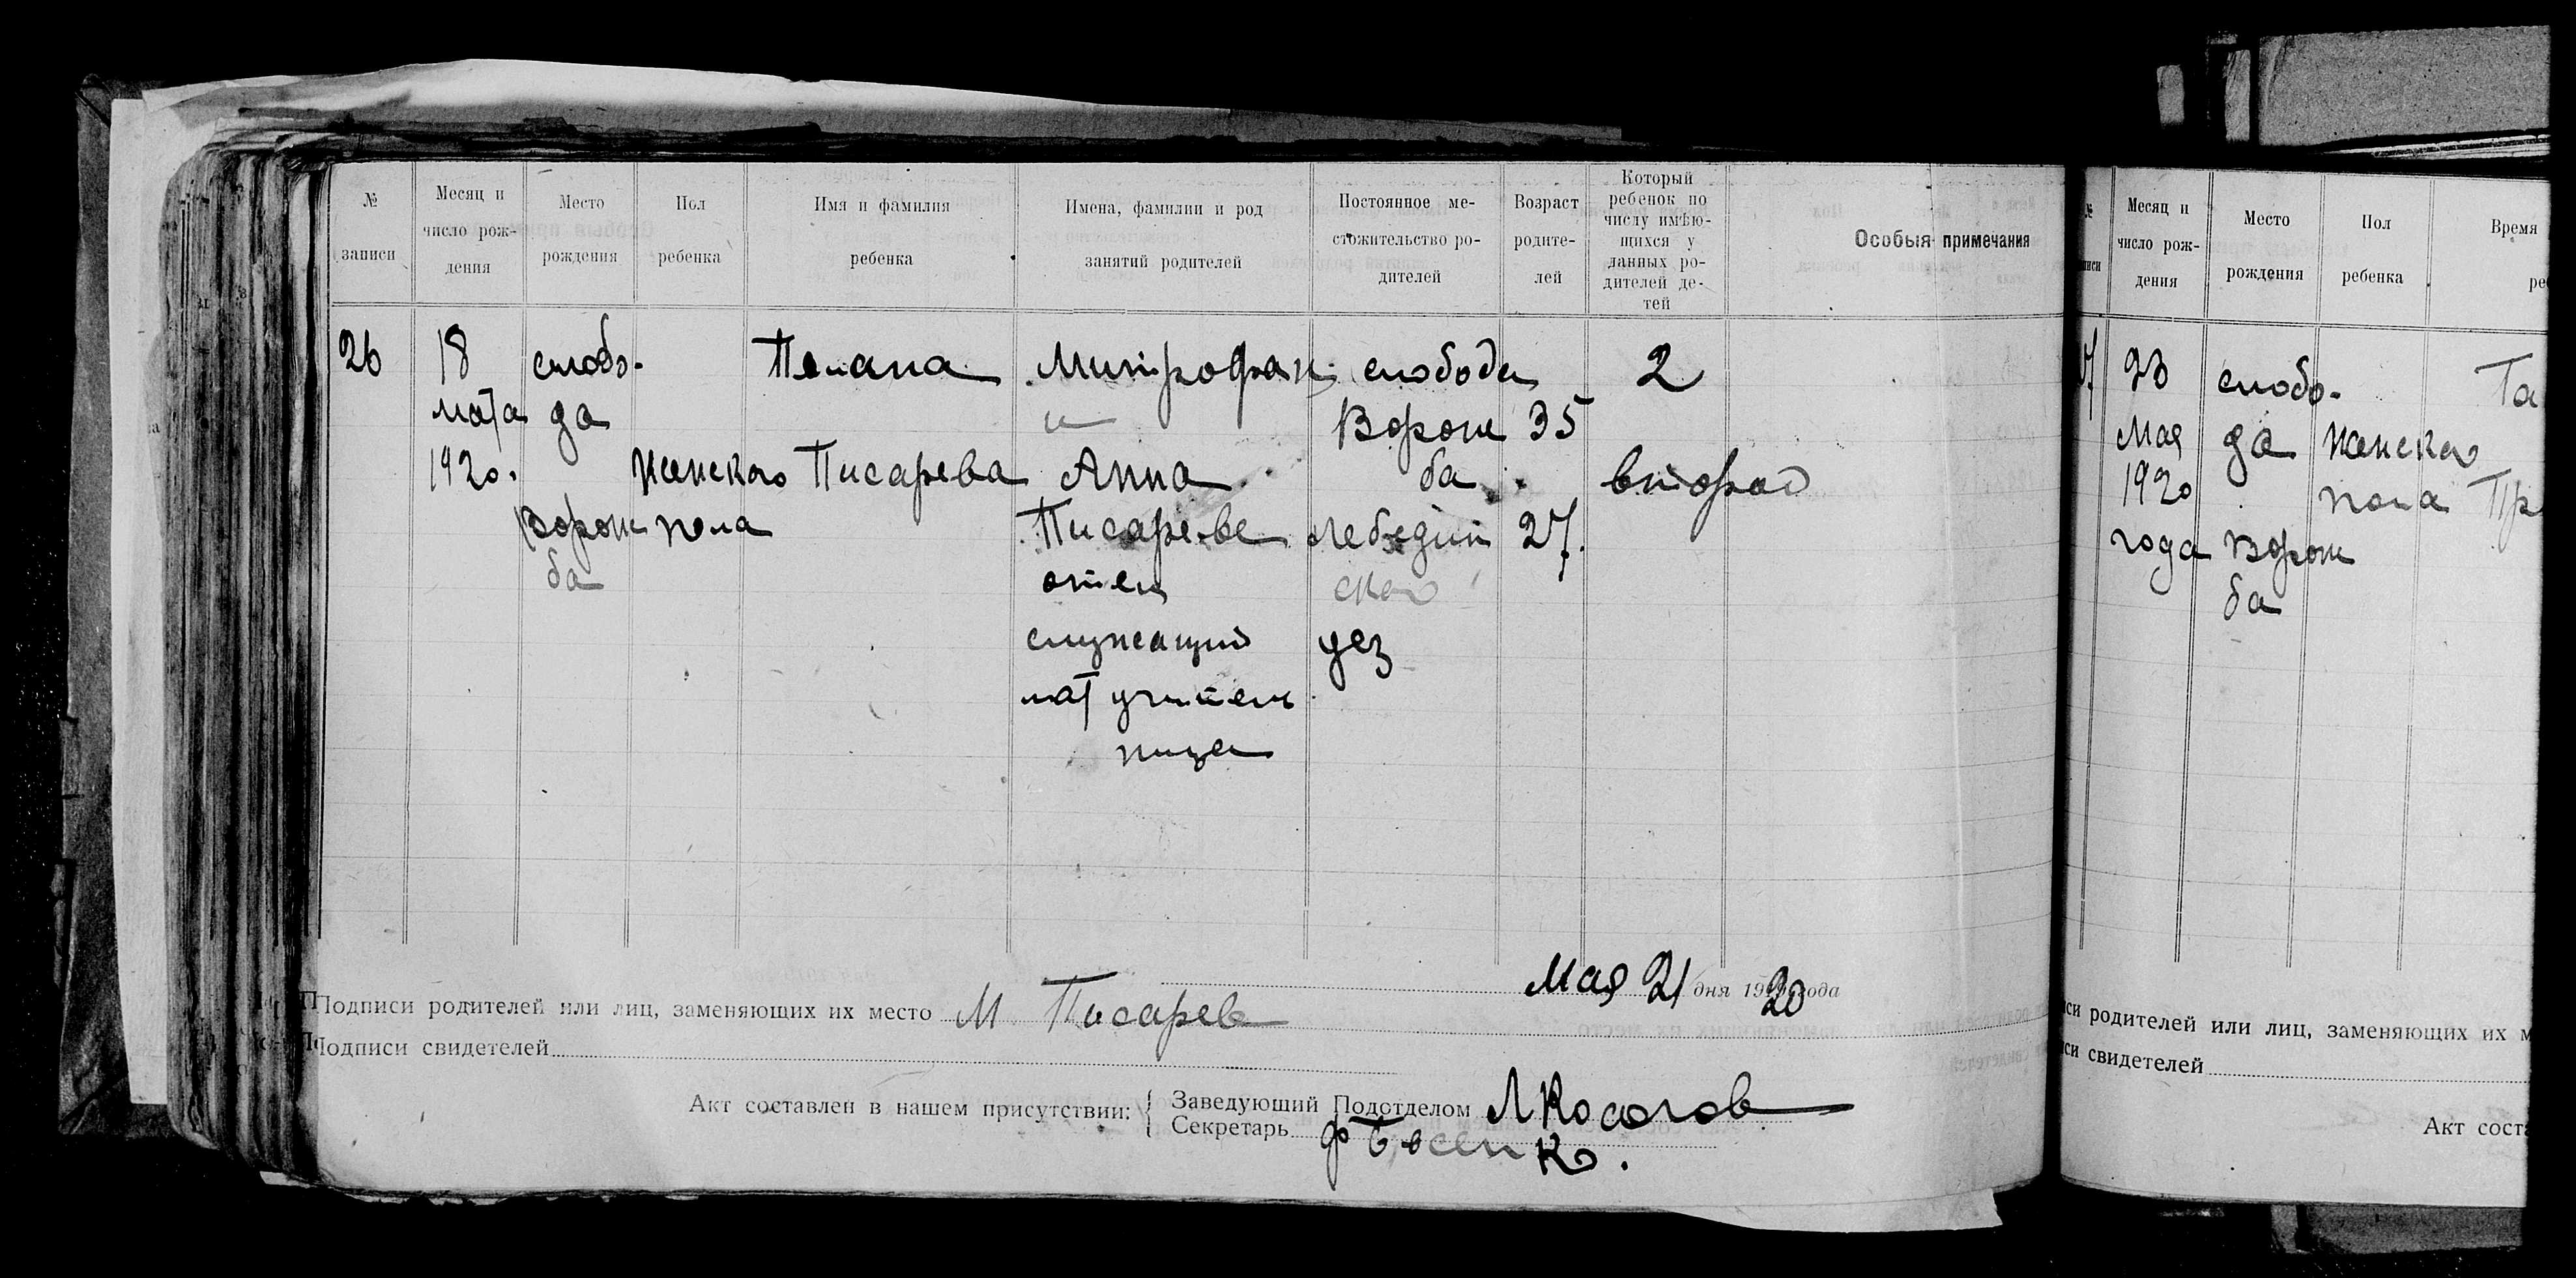 № записи
Месяц и число рож-
дения
Место рождения
Пол ребенка
Имя и фамилия ребенка
Имена, фамилии и род занятий родителей
Постоянное ме-
стожительство ро-
дителей
Возраст родите-
лей
Который
ребенок по
числу имѣю-
щихся у
данных ро-
дителей де-
тей
Особыя примечания
26
18
мая
1920.
слобо-
да
Ворож
ба
женского
пола
Писарева
Митрофан
и
Анна
Писаревы
отец
служащий
мат учитель
ница
слобода
Ворож
ба
Лебедин
ског
уез
35
27.
2
второй
Мая 21 дня 1920 года
Подписи родителей или лиц, заменяющих их место М Писарев
Подписи свидетелей
Акт составлен в нашем присутствии:
Заведующий Подотделом
Секретарь
Месяц и
число рож-
дения
Место
рождения
Пол
ребенка
Время
23
Мая
1920
года
слобо-
да
Ворож
ба
женског
пола
Та
Пр
си родителей или лиц, заменяющих их м
си свидетелей
Акт соста